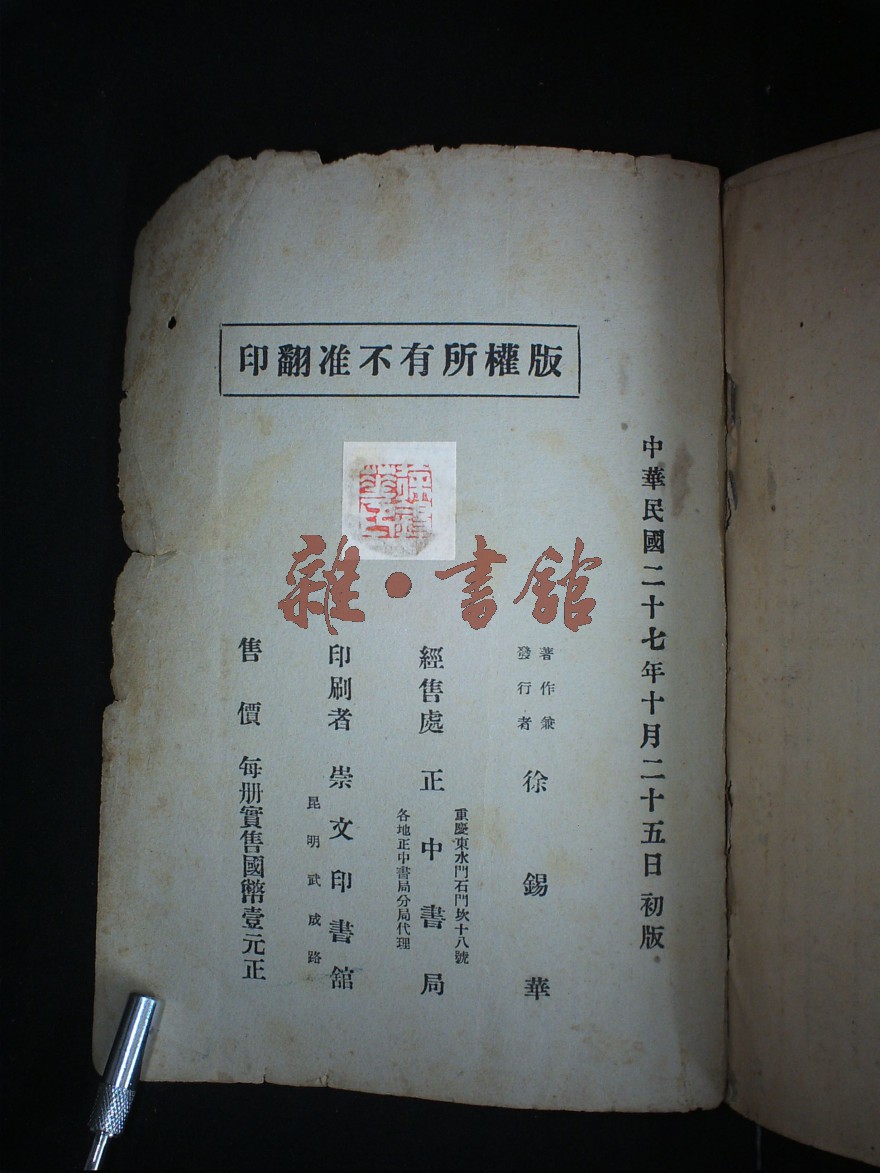 版權所有不准翻印
中華民國二十七年十月二十五日初版
著作兼
發行者
徐錫華
重慶東水門石門坎十八號
經售處 正中書局
各地正中書局分局代理
印刷者 崇文印書館
昆明武成路
售價 每册實售國幣壹元正
雜·書館